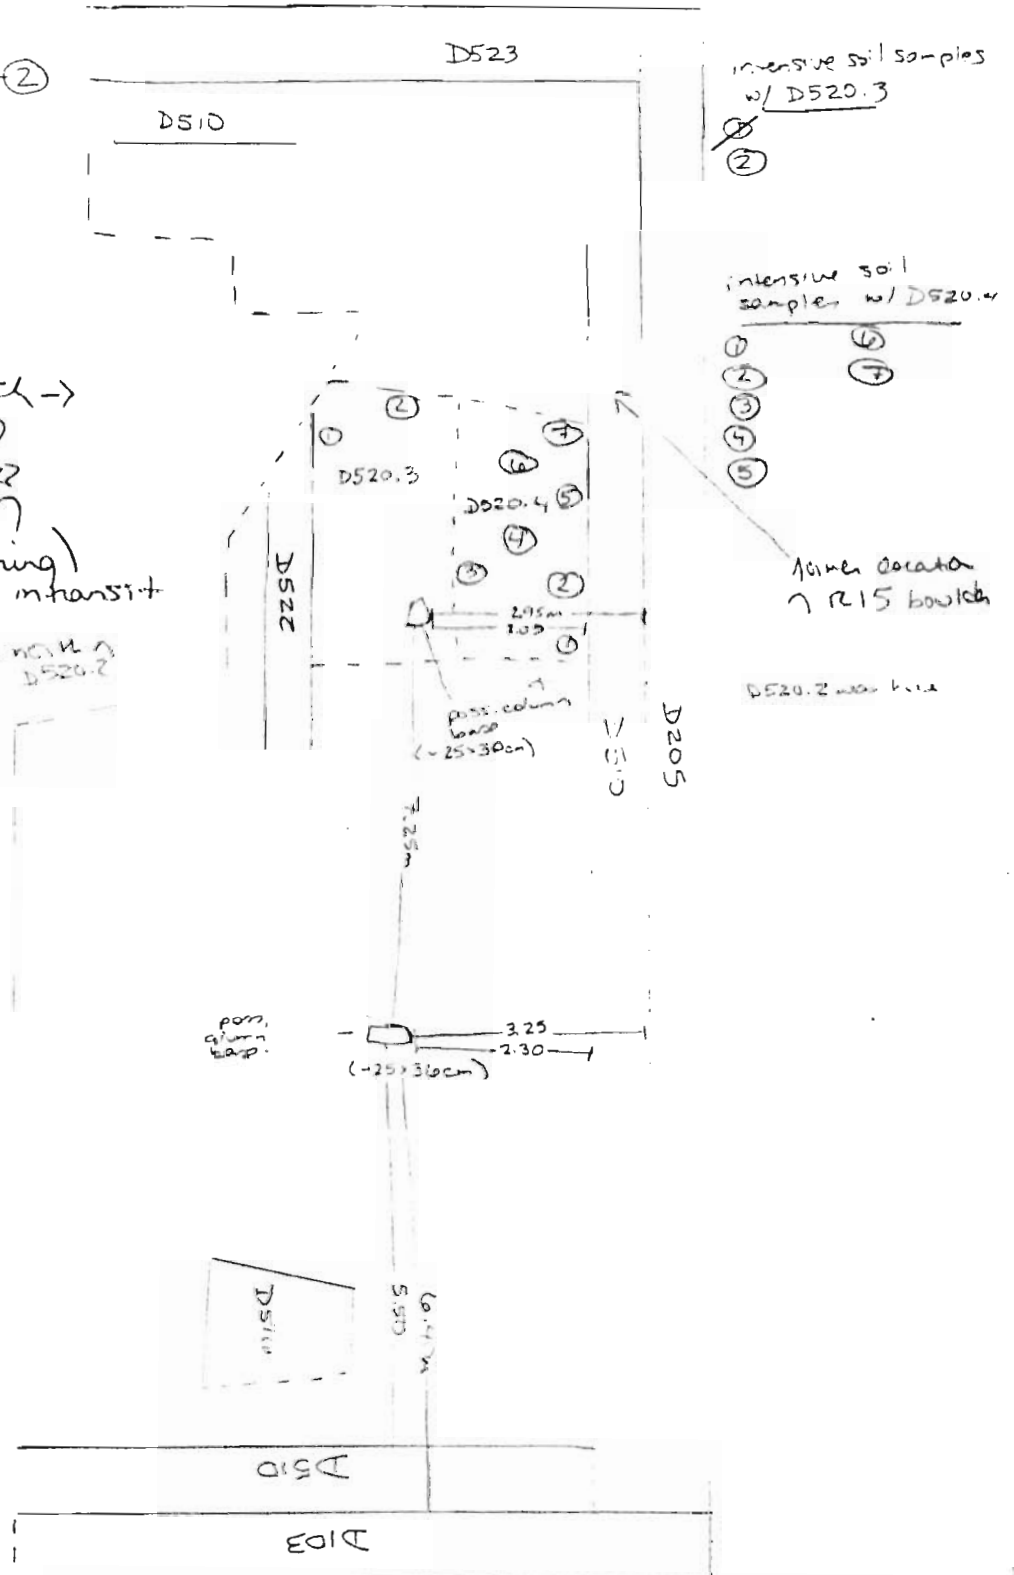 D523
②
D510
intensive soil samples
w/ D520.3
①
②
intensive soil
samples w/ D520.4
① ⑥
② ⑦
③
④
⑤
②
①
D520.3
⑦
⑥
D520.4 ⑤
④
③
②
①
D522
2.95m
2.05
poss. column
base
(~25x30cm)
former location
R15
D520.2 was here
D520.2
in transit
D510
D205
7.25m
poss.
column
base.
3.25
2.30
(~25x36cm)
5.50
6.41m
D510
D103